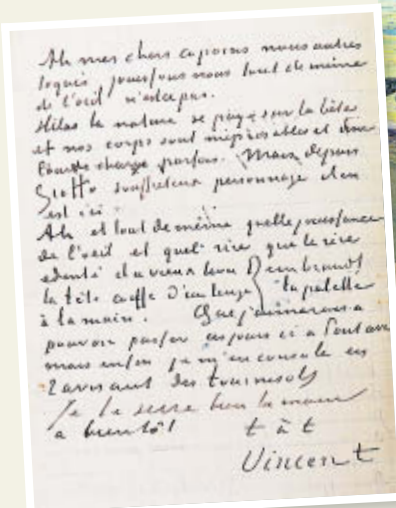 Ah mes chers copains nous autres
toqués jouissons nous tout de même
de l'oeil n'est ce pas.
Hélas la nature se paye sur la bête
et nos corps sont méprisables et d'une
lourde charge parfois. Mais depuis
Giotto souffreteux personnage il en
est ici
Ah et tout de même quelle jouissance
de l'oeil et quel rire que le rire
edenté du vieux lion Rembrandt
la tête coiffé d'un linge la palette
à la main. Que j'aimerais à
pouvoir passer ces jours ci à Pont aven
mais enfin je m'en console en
ravisant des tournesols
Je te serre bien la main
a bientôt t à t
Vincent